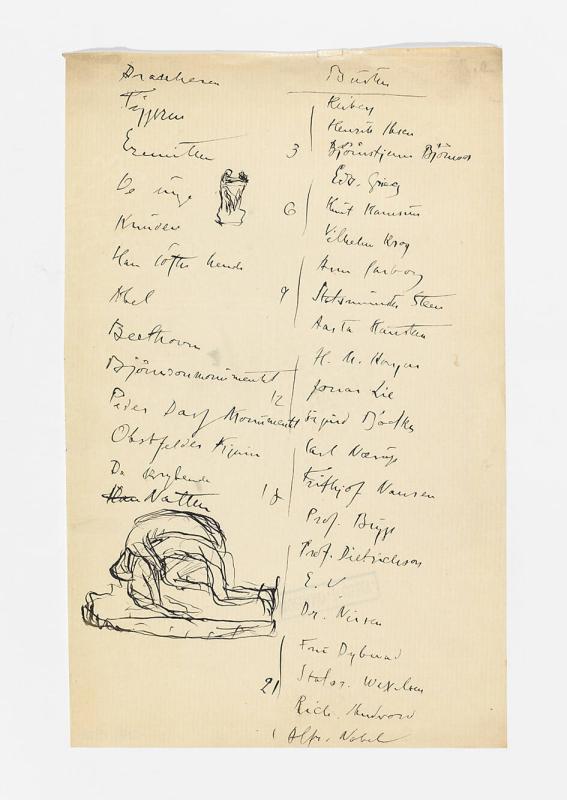 Tiggeren
Eremitten
De unge
Knælende
Han løfter hende
Abel
Beethoven
Björnsonmonumentet
Peder Dass Monumentet
Obstfelder Figuin
De krybende
Natten
Büsten
Henrik Ibsen
3
Björnstjerne Björnson
Edv. Grieg
6
Knut Hamsun
Vilhelm Krag
Arne Garborg
9
Statsminister Steen
Aasta Hansteen
12
Jonas Lie
Sigurd Bødtker
Carl Nærup
18
Frithjof Nansen
Prof. Brygge
Prof. Dietrichson
E. V
Dr. Nissen
Fru Dybwad
21
Statsr. Wexelsen
Rich.
Alfr. Nobel